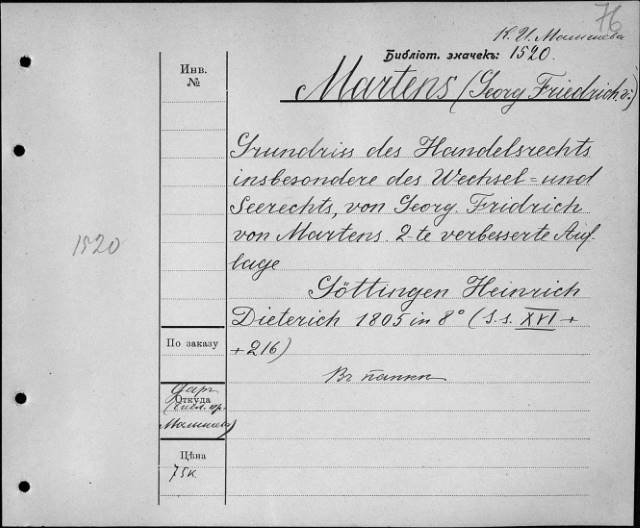 76
К. И. Малышева
Библіот. значекъ: 1520.
Martens (Georg Friedrich v.)
Инв.
№
Grundriss des Handelsrechts
insbesondere des Wechsel=und
Seerechts, von Georg Fridrich
von Martens. 2-te verbesserte Auf-
lage
1520
Göttingen Heinrich
Dieterich 1805 in 8° (S.s. XVI +
+ 216)
По заказу
Въ папкѣ
Откуда
Малышев)
Цѣна
75к